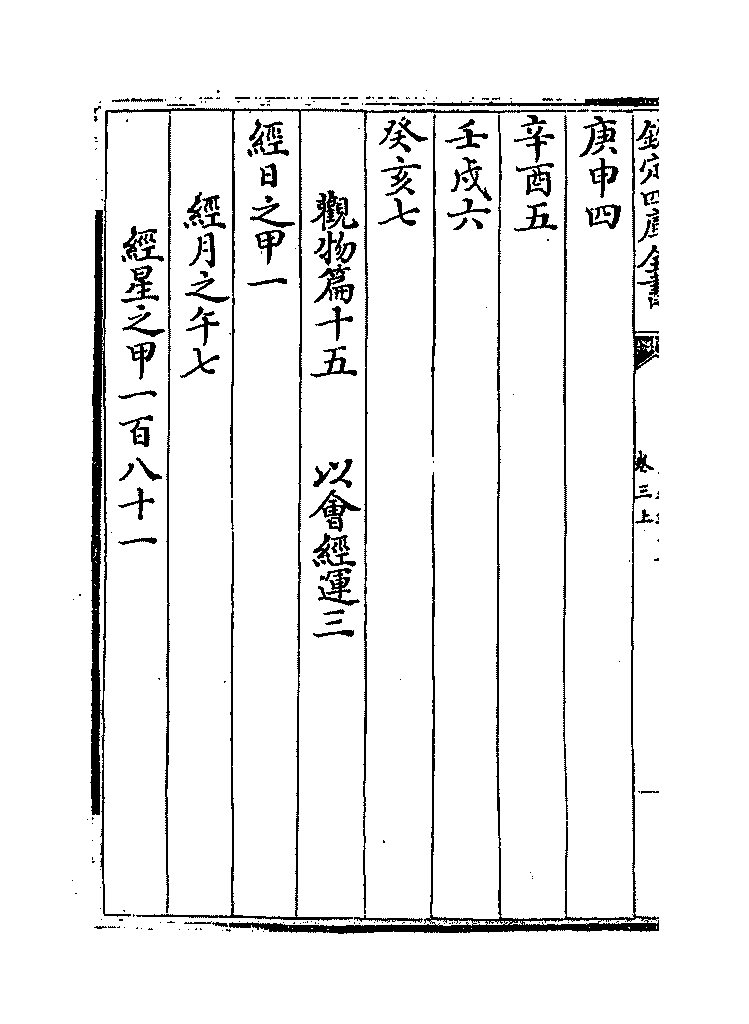 欽定四庫全書
卷三上
庚申四
辛酉五
壬戌六
癸亥七
觀物篇十五　以會經運三
經日之甲一
經月之午七
經星之甲一百八十一